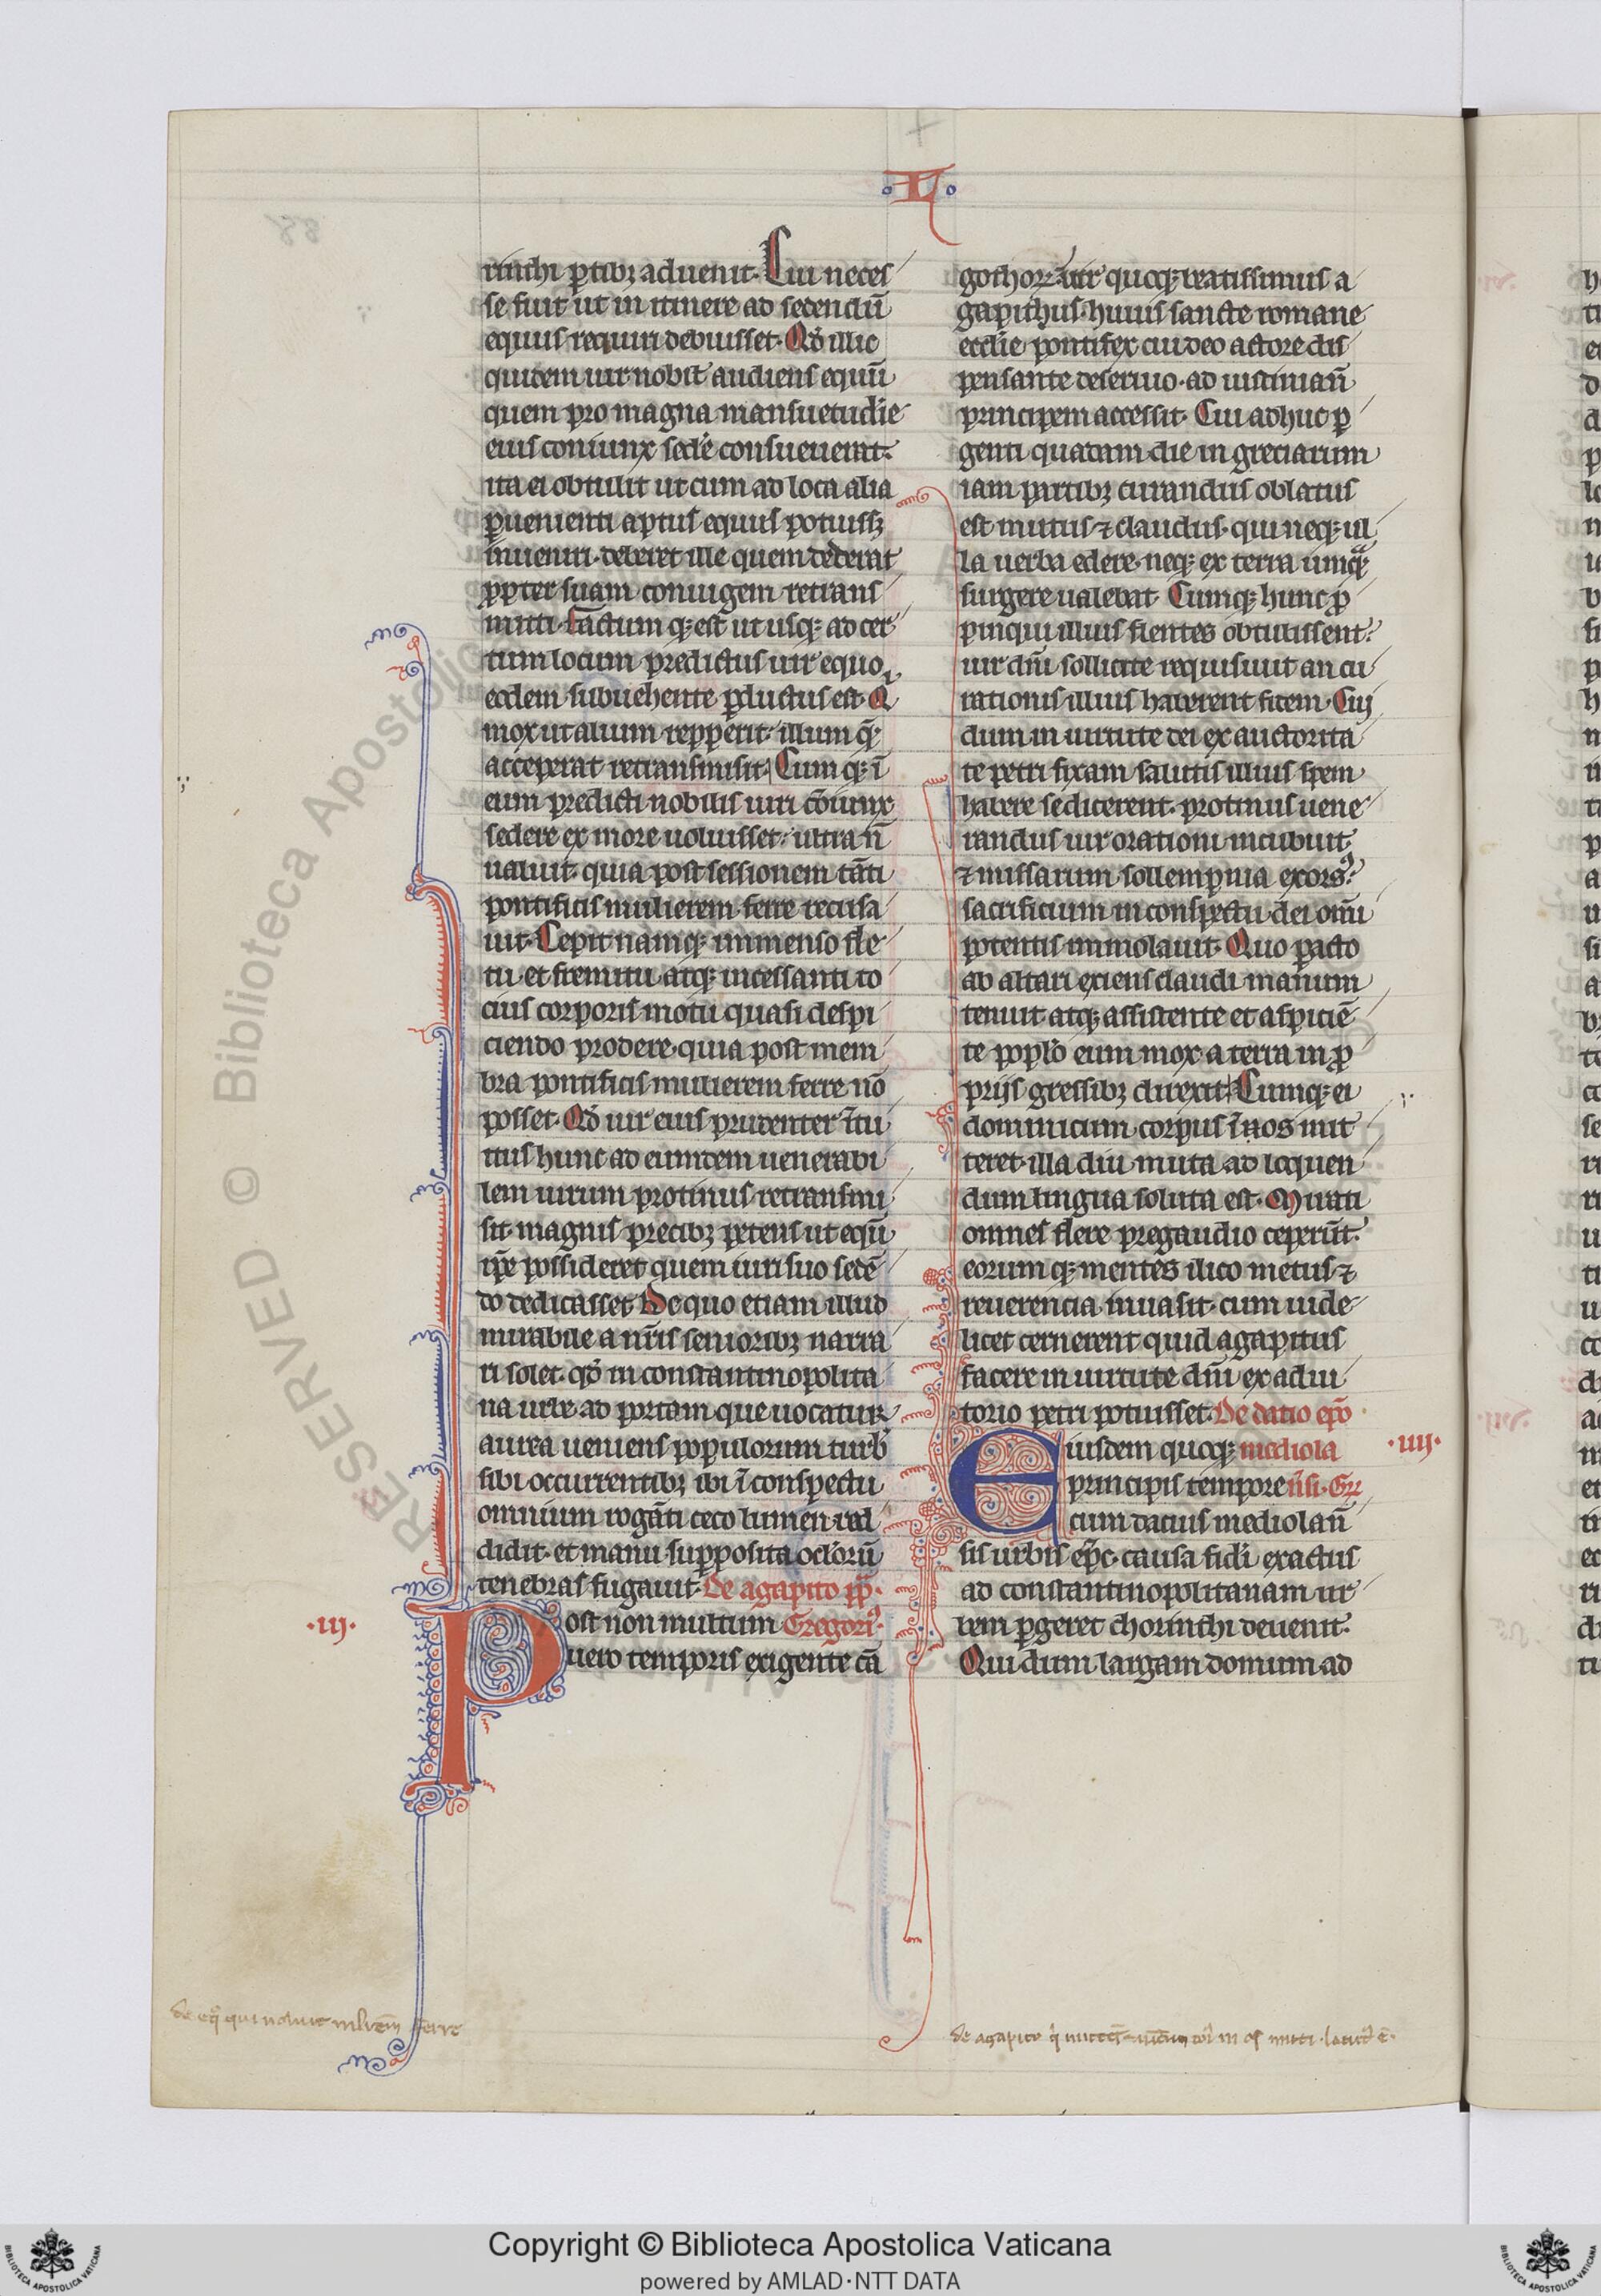 ·L·
rinthi ꝑtibꝫ aduenit. Cui neces
se fuit ut in itinere ad sedendū
equus requiri debuisset. Qđ illic
quidem uir nobił audiens equū
quem pro magna mansuetudīe
eius coniunx sedē consueuerat.
ita ei obtulit ut cum ad loca alia
ꝑuenienti aptus equus potuissꝫ
inueniri. deberet ille quem dederat
ꝓpter suam coniugem retrans
mitti. Factum qꝫ est ut usqꝫ ad cer
tum locum predictus uir equo
eodem subuehente ꝑductus est. Qi
mox ut alium repperit. illum q̄
acceperat retransmisit. Cum qꝫ ī
eum predicti nobilis uiri cōiunx
sedere ex more uoluisset. ultra nō
ualuit. quia post sessionem tāti
pontificis mulierem ferre recusa
uit. Cepit namqꝫ immenso fle
tu et fremitu atqꝫ incessanti to
cius corporis motu quasi despi
ciendo prodere. quia post mem
bra pontificis mulierem ferre nō
posset. Qđ uir eius prudenter ītu
itus hunc ad eumdem uenerabi
lem uirum protinus retransmi
sit. magnis precibꝫ petens ut equū
ip̄e possideret quem iuri suo sedē
do dedicasset. De quo etiam illud
mirabile a nr̄is senioribꝫ narra
ri solet. qđ in constantinopolita
na urbe ad portam que uocatur
aurea ueniens populorum turb
sibi occurrentibꝫ ibi ī conspectu
omnium rogāti ceco lumen red
didit. et manu supposita oclōrū
tenebras fugauit. De agapito pp̄.
·III·
Post non multum Gregori⁹.
uero temporis exigente cā
gothoꝝ uir quoqꝫ beatissimus a
gapithus. huius sancte romane
ecclīe pontifex cui deo actore dis
pensante deseruio. ad iustinianū
principem accessit. Cui adhuc ꝑ
genti quadam die in greciarum
iam partibꝫ curandus oblatus
est mutus ⁊ claudus. qui neqꝫ ul
la uerba edere. neqꝫ ex terra umqᵃ
surgere ualebat. Cumqꝫ hunc ꝓ
pinqui illius flentes obtulissent.
uir dn̄i sollicite requisiuit an cu
rationis illius haberent fidem. Cui
dum in uirtute dei ex auctorita
te petri fixam salutis illius spem
habere se dicerent. protinus uene
randus uir orationi incubuit
⁊ missarum sollempnia exors⁹.
sacrificium in conspectu dei omī
potentis immolauit. Quo pacto
ab altari exiens claudi manum
tenuit atqꝫ assistente et aspiciē
te poplō eum mox a terra in ꝓ
prijs gressibꝫ direxit. Cumqꝫ ei
dominicum corpus ī nos mit
teret. illa diu muta ad loquen
dum lingua soluta est. Mirati
omnes flere pre gaudio ceperūt.
eorum qꝫ mentes ilico metus ⁊
reuerencia inuasit. cum uide
licet cernerent quid agapitus
facere in uirtute dn̄i ex adiu
torio petri potuisset. De datio ep̄o
Eiusdem quoqꝫ mediola
·IIII·
principis tempore nsi. Gꝝ
cum dacius mediolanē
sis urbis ep̄c. causa fidi exactus
ad constantinopolitanam ur
bem ꝑgeret chorinthi deuenit.
Qui dum largam domum ad
de eq̊ qui noluit mlr̄em ferre
de agapito
Copyright © Biblioteca Apostolica Vaticana
powered by AMLAD·NTT DATA
RESERVED © Biblioteca Apostolic